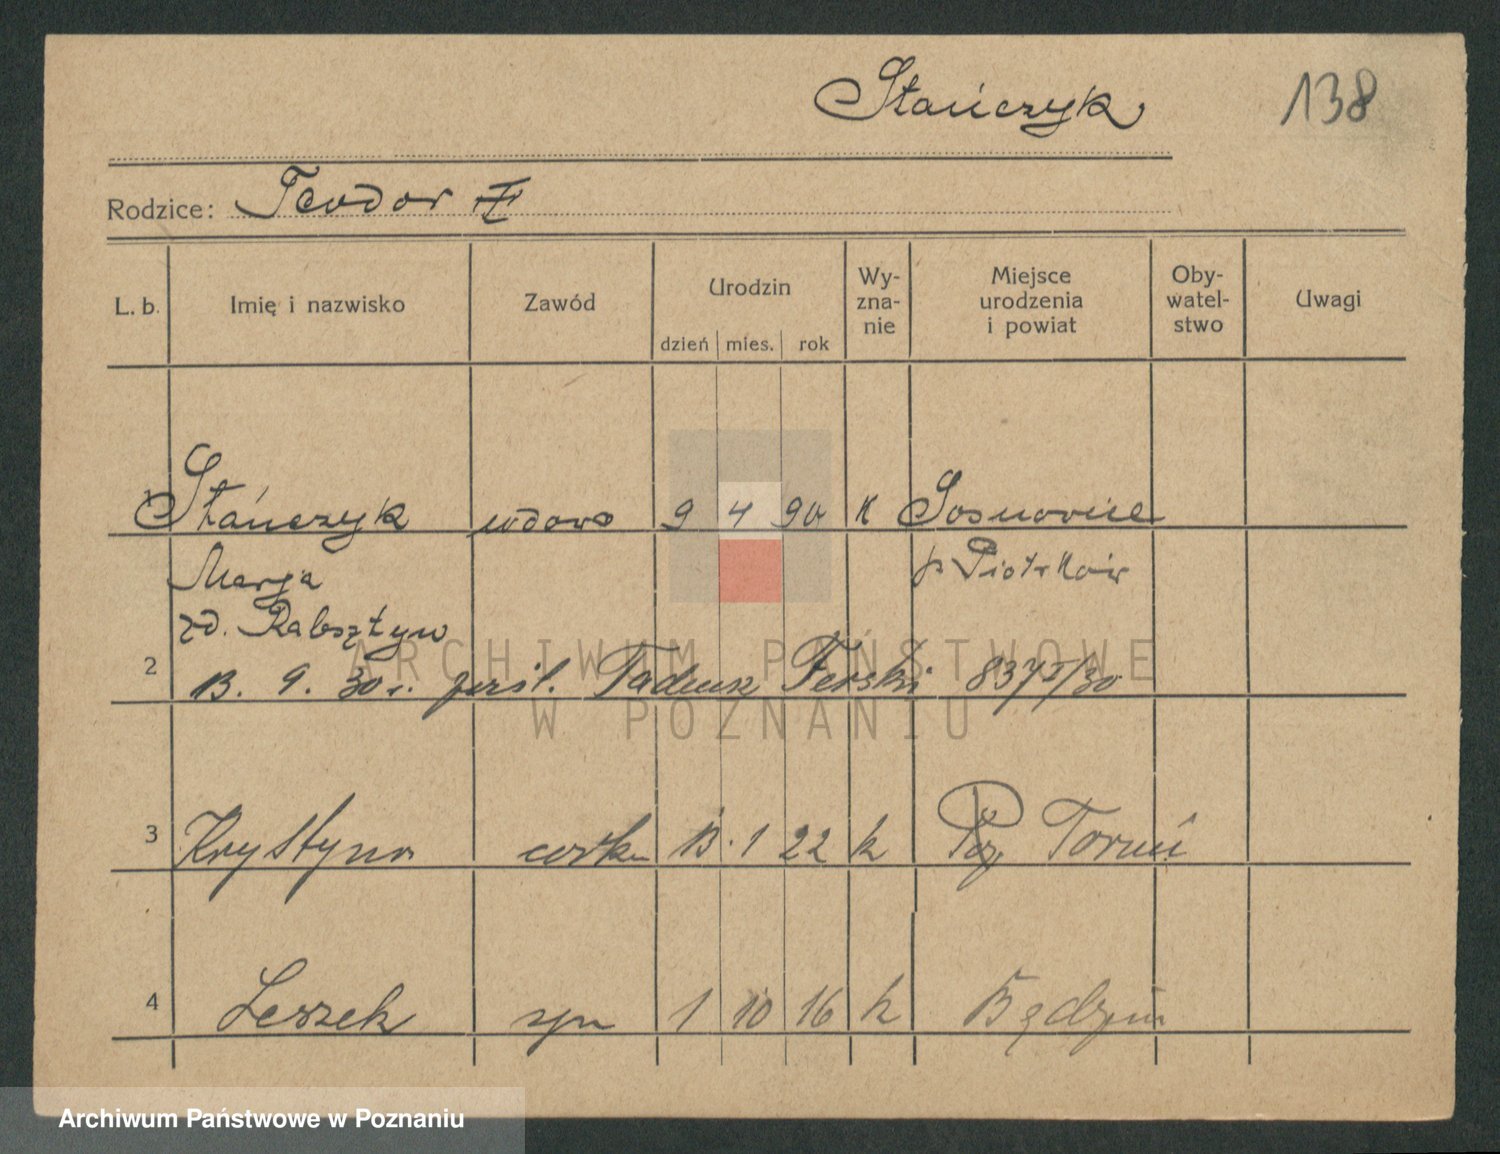 Stańczyk 138
Rodzice: Teodor
L. b. Imię i nazwisko Zawód Urodzin dzień mies. rok Wy-zna-nie Miejsce urodzenia i powiat Oby-watel-stwo Uwagi
1 Stańczyk wdowa 9 4 90 K Sosnowice
Marja p. Piotrków
zd. Rabsztyn
2 13. 9. 30 r. Tadeusz Ferski 837/30
ARCHIWUM PAŃSTWOWE
W POZNANIU
3 Krystyna córka 13. 1 22 k Toruń
4 Leszek syn 1 10 16 k Będzin
Archiwum Państwowe w Poznaniu